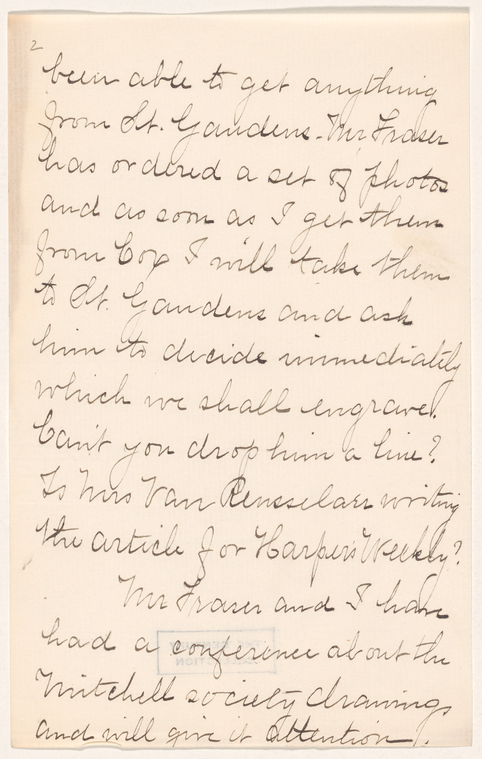 2
been able to get anything
from St. Gaudens. Mr. Fraser
has ordered a set of photos
and as soon as I get them
from Cox I will take them
to St. Gaudens and ask
him to decide immediately
which we shall engrave.
Can't you drop him a line?
Is Mrs Van Rensselaer writing
the article for Harper's Weekly?
Mr Fraser and I have
had a conference about the
Mitchell society drawings
and will give it attention.